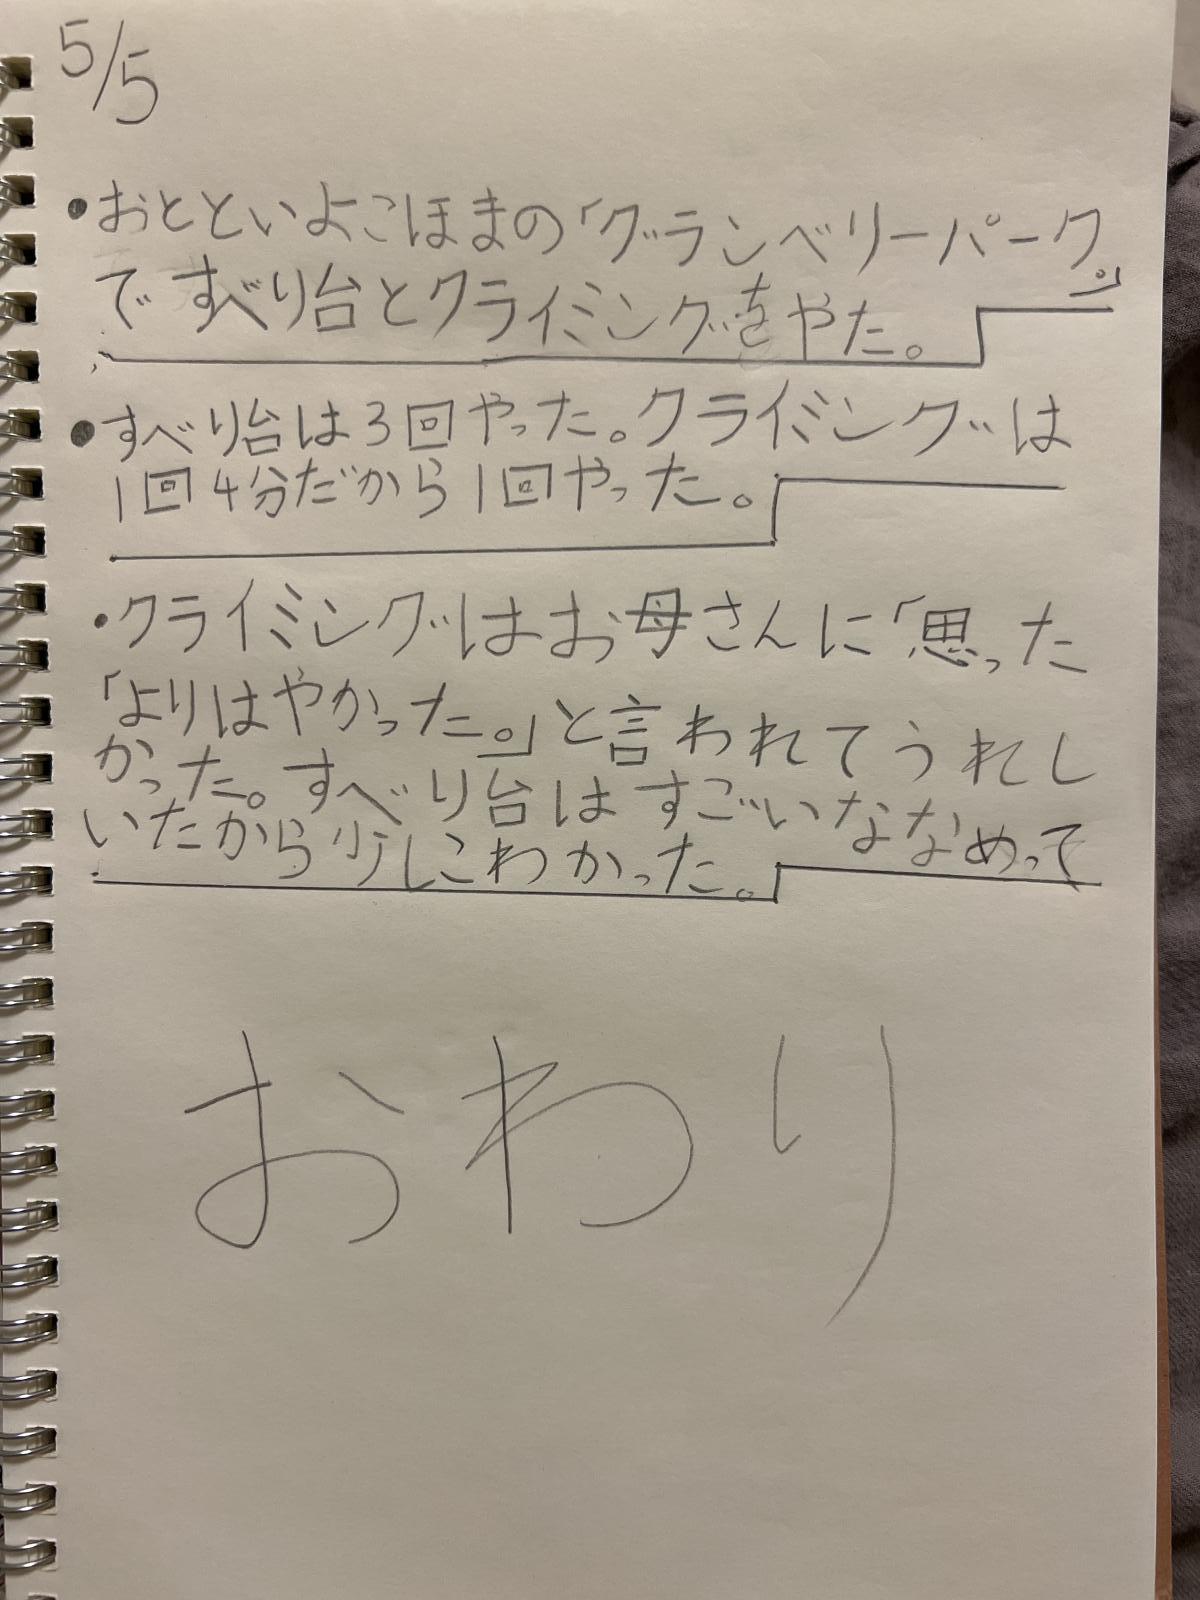 5/5
・おとといよこほまの「グランベリーパーク」
ですべり台とクライミングをやた。
・すべり台は3回やった。クライミングは
1回4分だから1回やった。
・クライミングはお母さんに「思った
「よりはやかった。」と言われてうれし
かった。すべり台はすごいななめって
いたから少しこわかった。
おわり